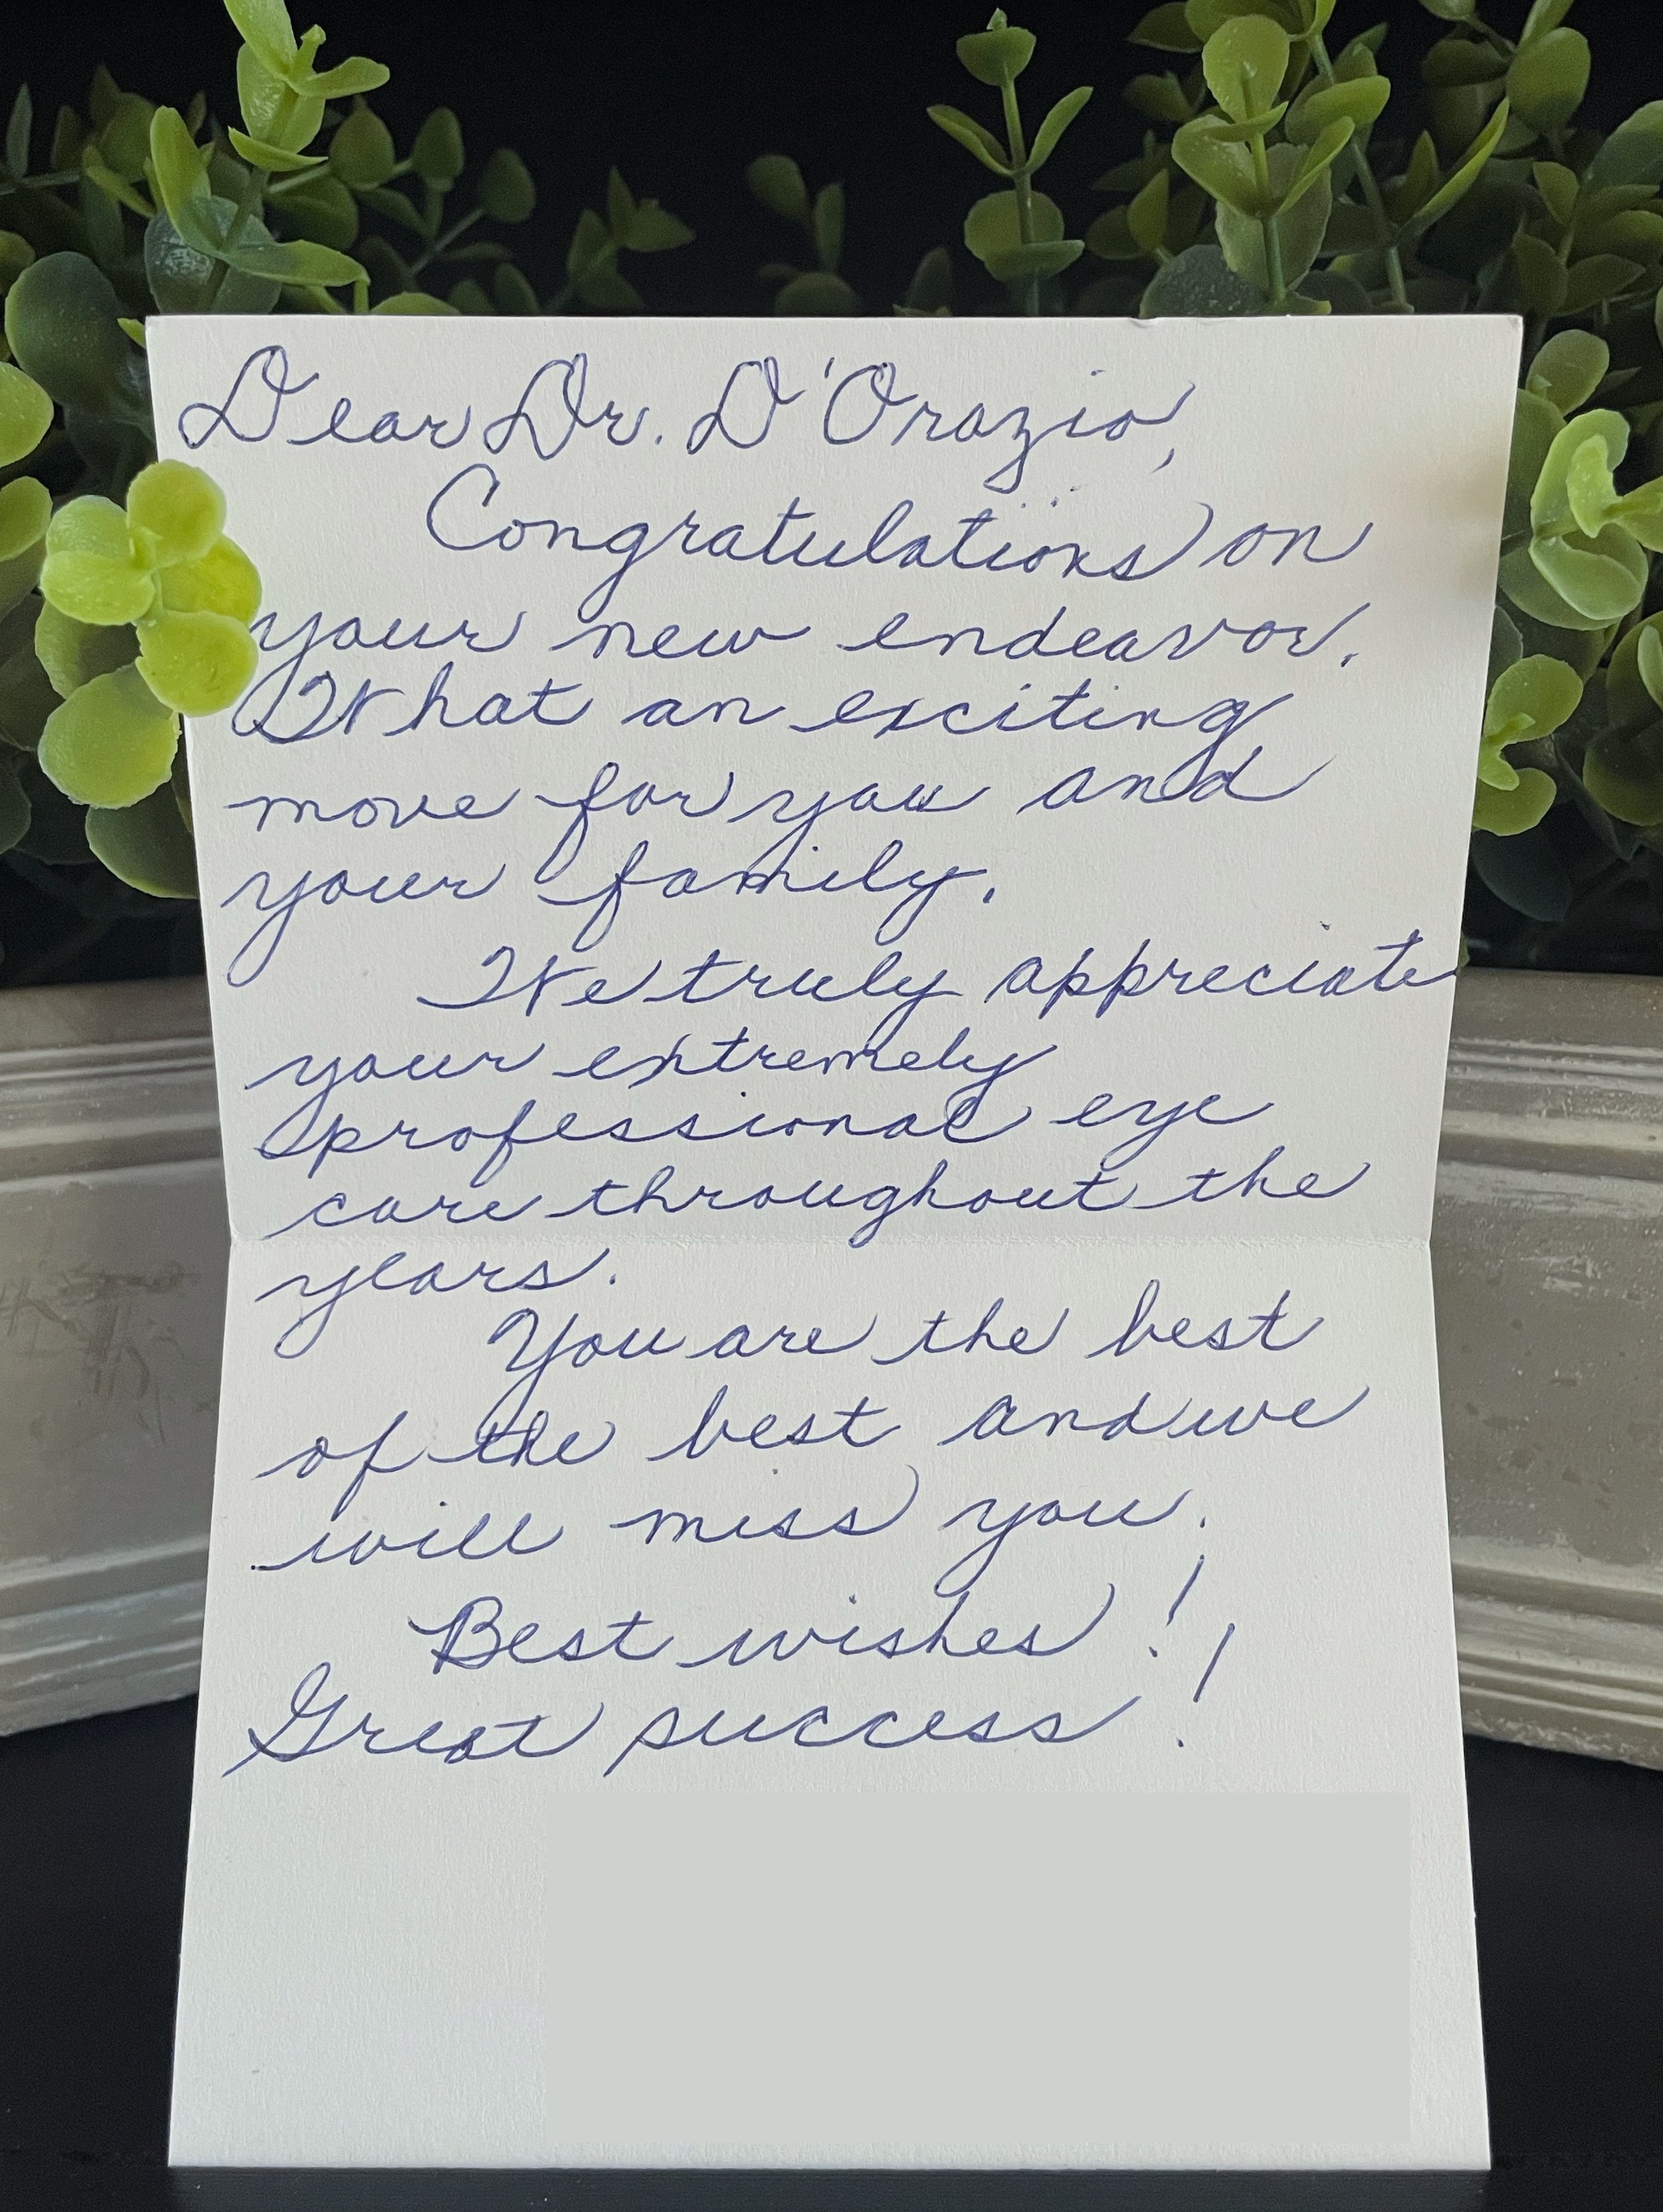 Dear Dr. D'Orazio,
Congratulations on
your new endeavor.
What an exciting
move for you and
your family.
We truly appreciate
your extremely
professional eye
care throughout the
years.
You are the best
of the best and we
will miss you.
Best wishes!
Great success!